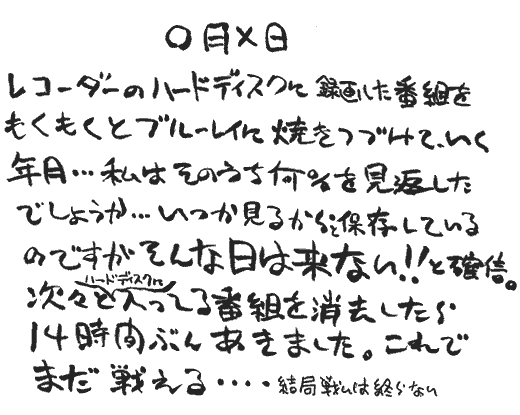 〇月×日
レコーダーのハードディスクに録画した番組を
もくもくとブルーレイに焼きつづけて、いく
年月…私はそのうち何%を見返した
でしょうか…いつか見るからと保存している
のですがそんな日は来ない!!と確信。
ハードディスクに
次々と入ってる番組を消去したら
14時間ぶんあきました。これで
まだ戦える・・・・結局戦いは終らない